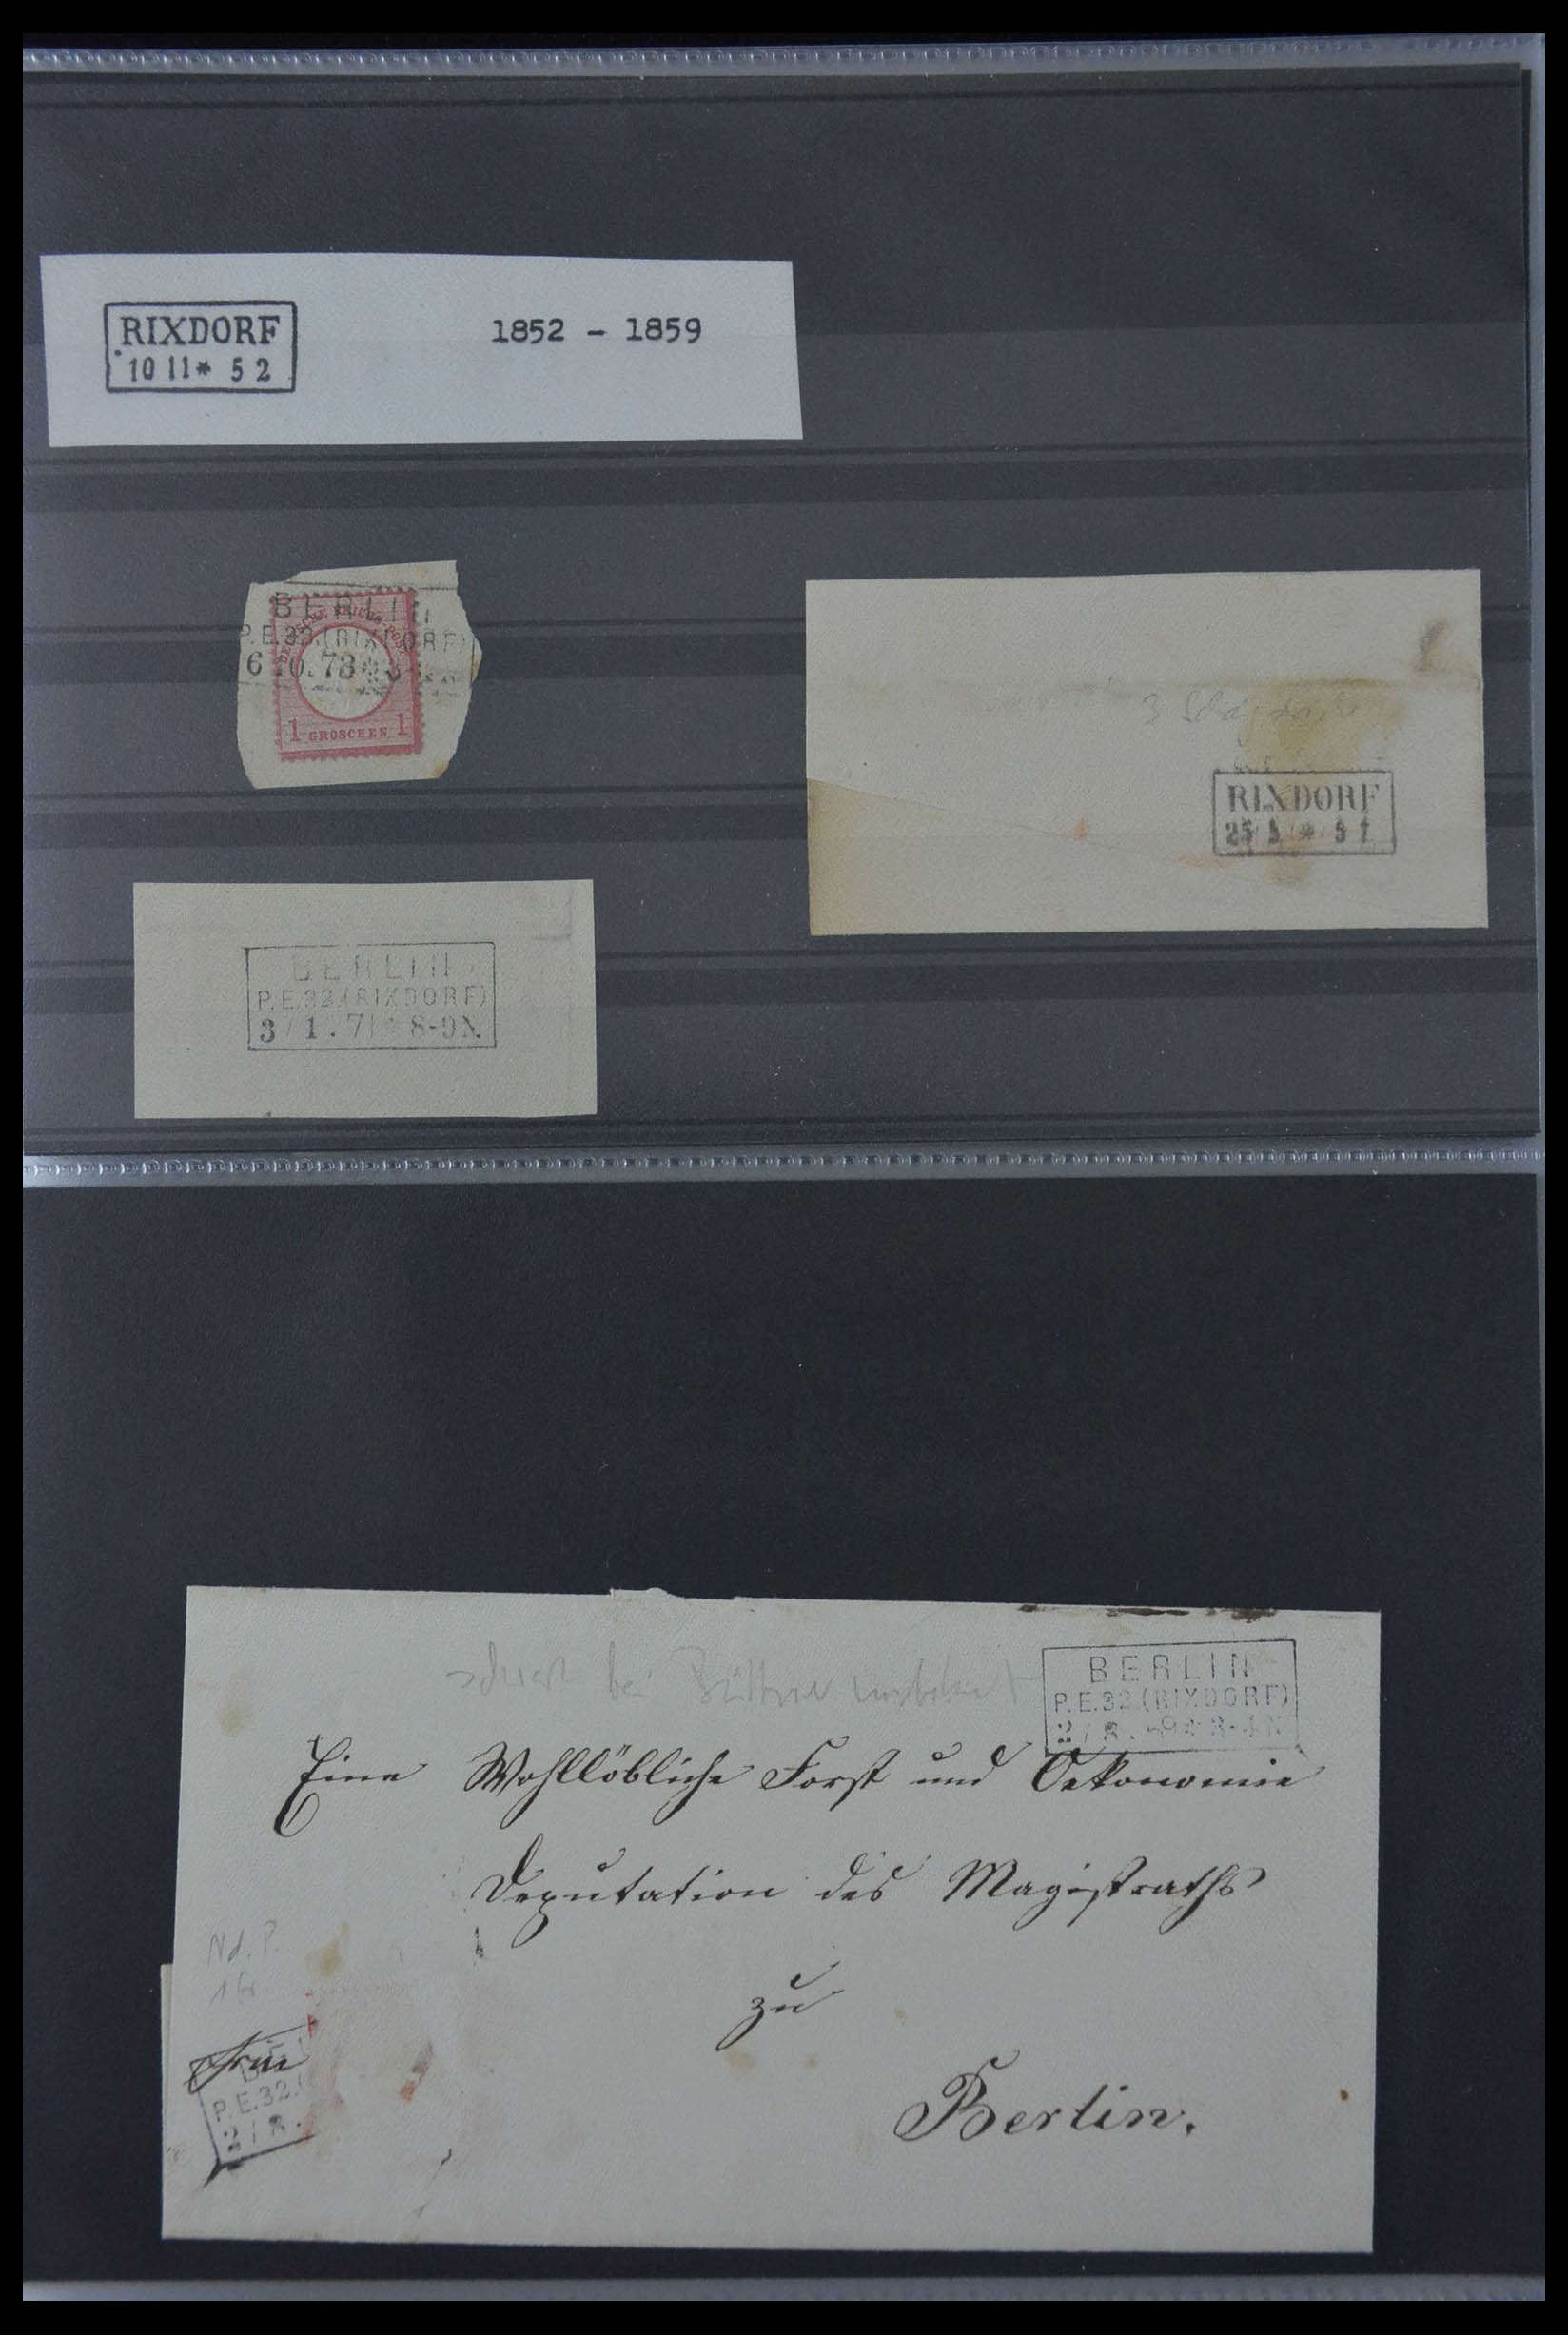 RIXDORF
10 11* 52
1852 - 1859
BERLIN
P.E.32.(RIXDORF)
DEUTSCHE REICHS-POST
1 GROSCHEN 1
3
RIXDORF
BERLIN
P.E.32.(RIXDORF)
3 / 1 . 71 * 8-9 N.
bei
BERLIN
P.E.32.(RIXDORF)
Eine Wohllöbliche Forst und Oekonomie
Deputation des Magistraths
zu
Berlin.
Nd. P.
1 Gr
P.E.32.(
2 / 8 .